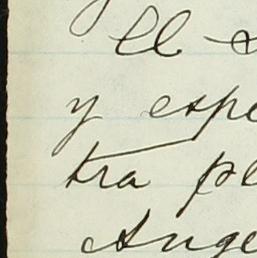 El
y espe
tra pl
Ange